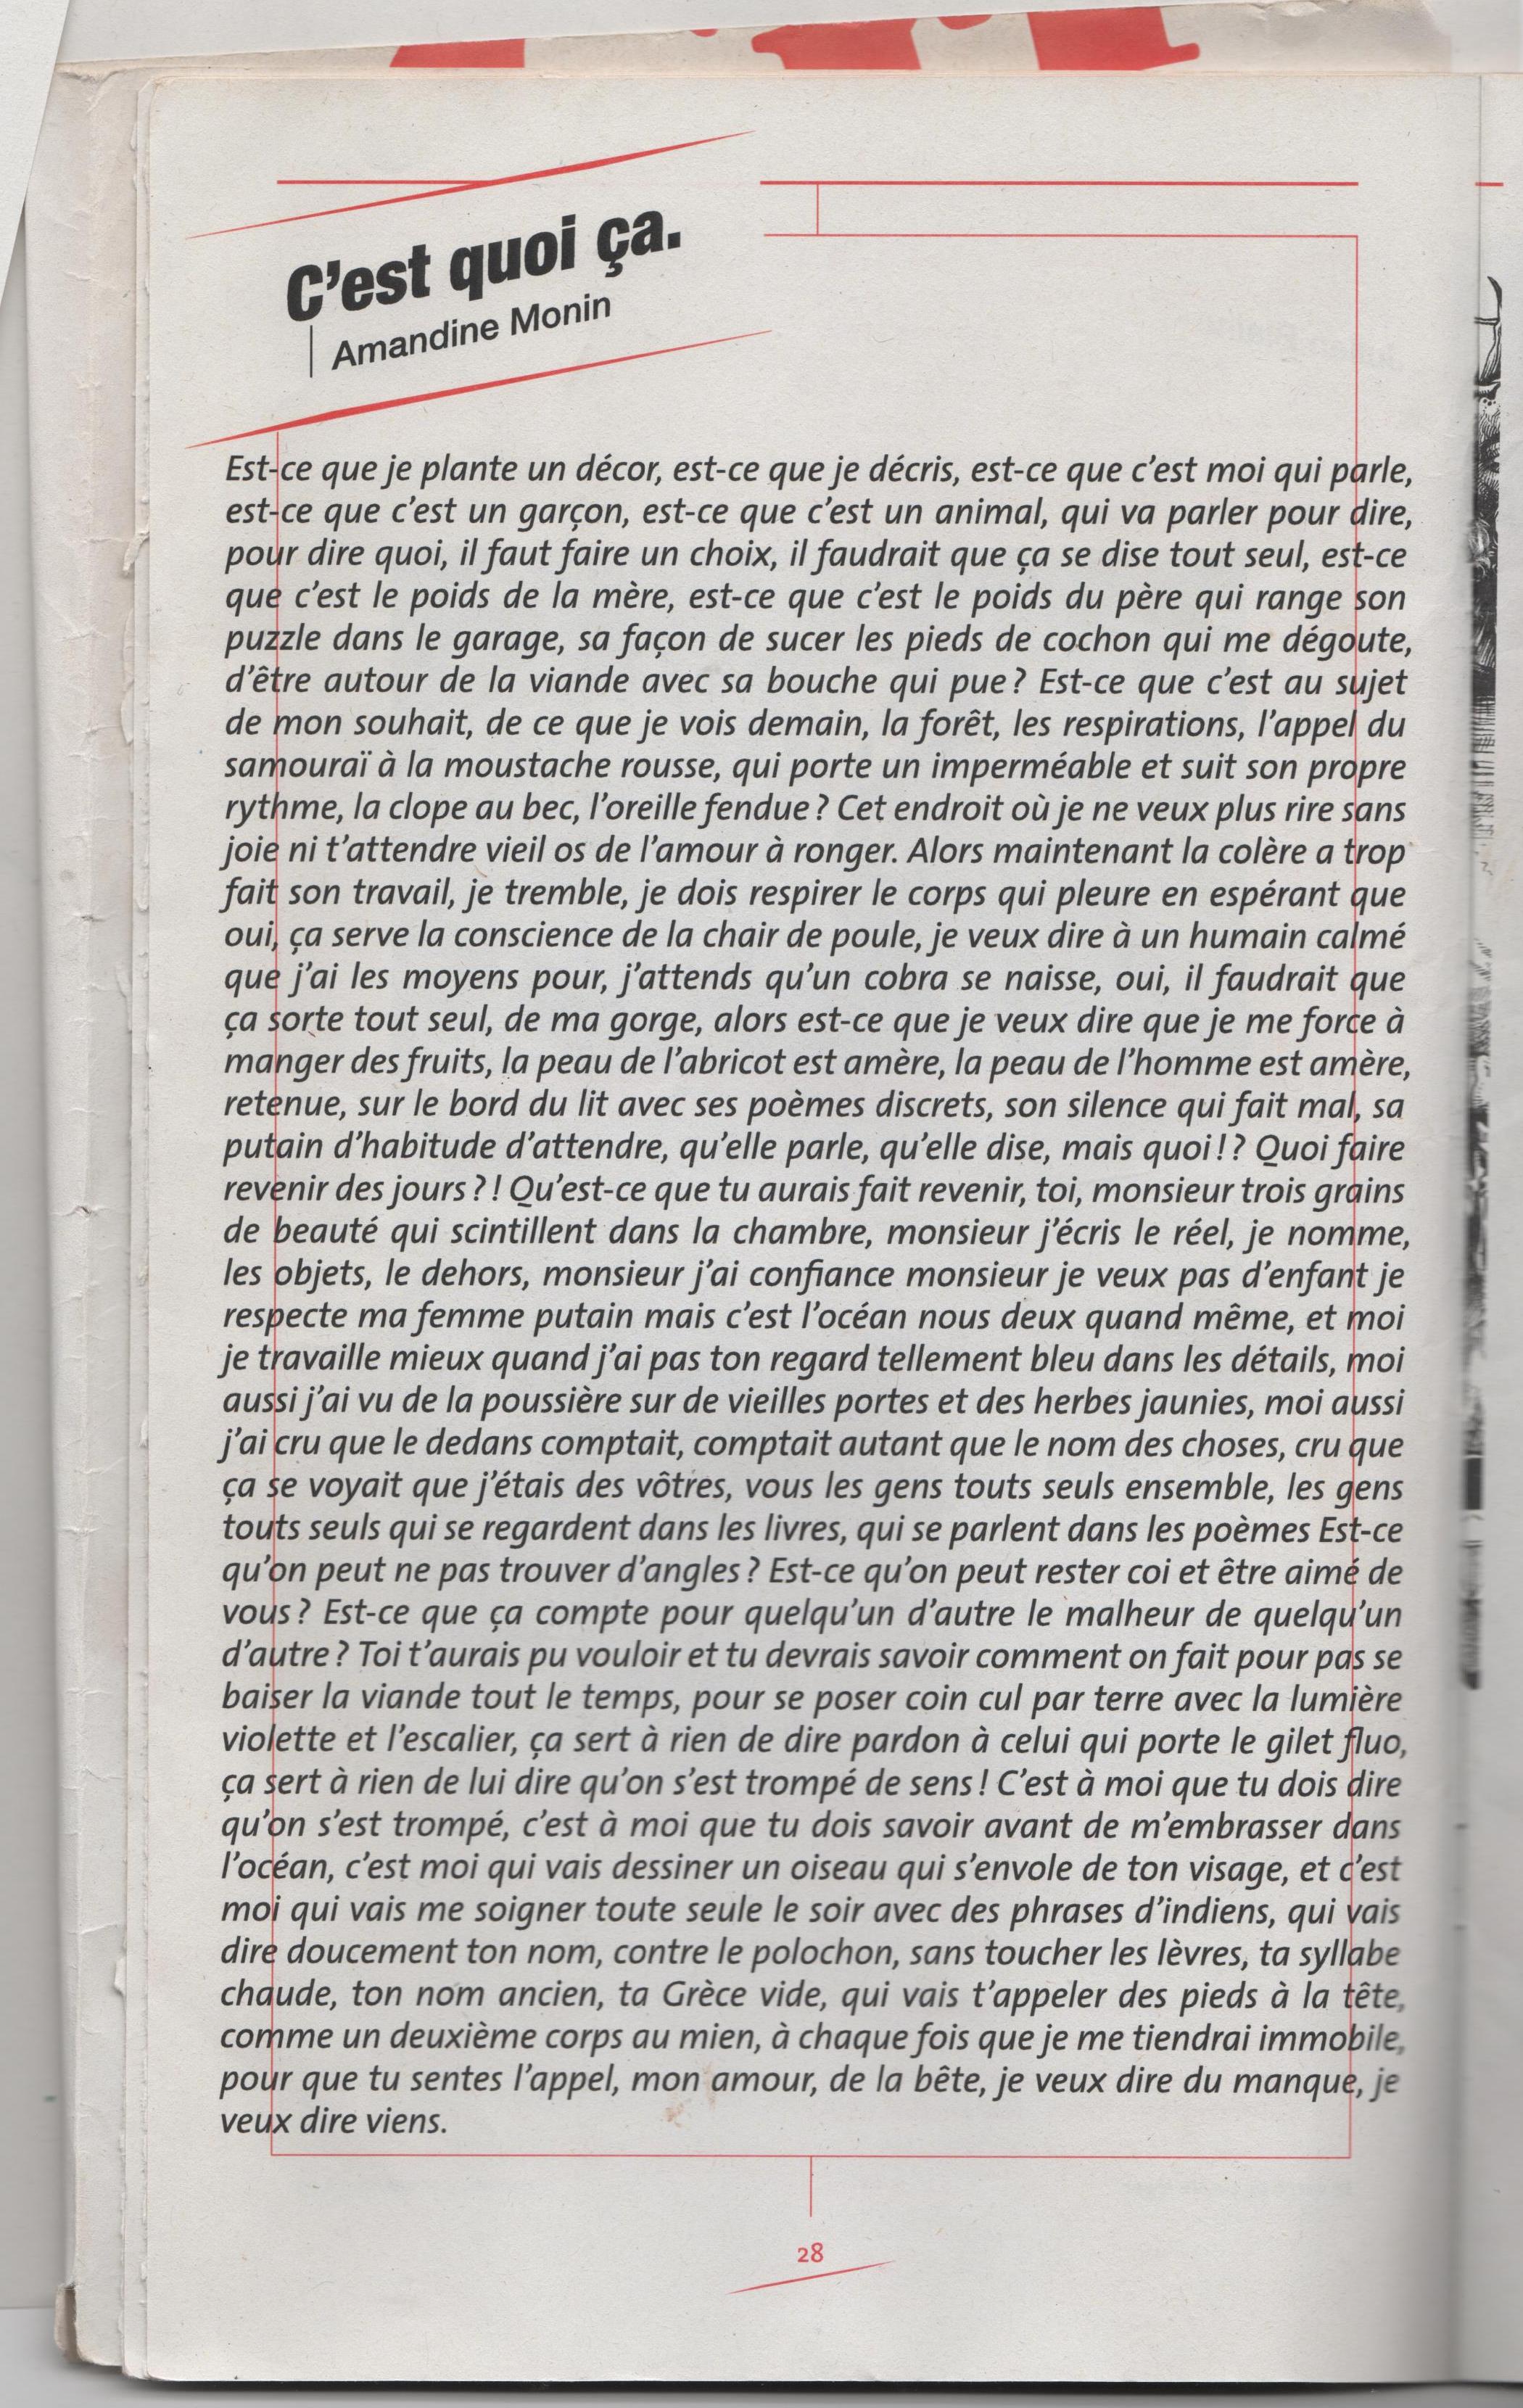 C'est quoi ça.
Amandine Monin
Est-ce que je plante un décor, est-ce que je décris, est-ce que c'est moi qui parle,
est-ce que c'est un garçon, est-ce que c'est un animal, qui va parler pour dire,
pour dire quoi, il faut faire un choix, il faudrait que ça se dise tout seul, est-ce
que c'est le poids de la mère, est-ce que c'est le poids du père qui range son
puzzle dans le garage, sa façon de sucer les pieds de cochon qui me dégoute,
d'être autour de la viande avec sa bouche qui pue ? Est-ce que c'est au sujet
de mon souhait, de ce que je vois demain, la forêt, les respirations, l'appel du
samouraï à la moustache rousse, qui porte un imperméable et suit son propre
rythme, la clope au bec, l'oreille fendue ? Cet endroit où je ne veux plus rire sans
joie ni t'attendre vieil os de l'amour à ronger. Alors maintenant la colère a trop
fait son travail, je tremble, je dois respirer le corps qui pleure en espérant que
oui, ça serve la conscience de la chair de poule, je veux dire à un humain calmé
que j'ai les moyens pour, j'attends qu'un cobra se naisse, oui, il faudrait que
ça sorte tout seul, de ma gorge, alors est-ce que je veux dire que je me force à
manger des fruits, la peau de l'abricot est amère, la peau de l'homme est amère,
retenue, sur le bord du lit avec ses poèmes discrets, son silence qui fait mal, sa
putain d'habitude d'attendre, qu'elle parle, qu'elle dise, mais quoi ! ? Quoi faire
revenir des jours ? ! Qu'est-ce que tu aurais fait revenir, toi, monsieur trois grains
de beauté qui scintillent dans la chambre, monsieur j'écris le réel, je nomme,
les objets, le dehors, monsieur j'ai confiance monsieur je veux pas d'enfant je
respecte ma femme putain mais c'est l'océan nous deux quand même, et moi
je travaille mieux quand j'ai pas ton regard tellement bleu dans les détails, moi
aussi j'ai vu de la poussière sur de vieilles portes et des herbes jaunies, moi aussi
j'ai cru que le dedans comptait, comptait autant que le nom des choses, cru que
ça se voyait que j'étais des vôtres, vous les gens touts seuls ensemble, les gens
touts seuls qui se regardent dans les livres, qui se parlent dans les poèmes Est-ce
qu'on peut ne pas trouver d'angles ? Est-ce qu'on peut rester coi et être aimé de
vous ? Est-ce que ça compte pour quelqu'un d'autre le malheur de quelqu'un
d'autre ? Toi t'aurais pu vouloir et tu devrais savoir comment on fait pour pas se
baiser la viande tout le temps, pour se poser coin cul par terre avec la lumière
violette et l'escalier, ça sert à rien de dire pardon à celui qui porte le gilet fluo,
ça sert à rien de lui dire qu'on s'est trompé de sens ! C'est à moi que tu dois dire
qu'on s'est trompé, c'est à moi que tu dois savoir avant de m'embrasser dans
l'océan, c'est moi qui vais dessiner un oiseau qui s'envole de ton visage, et c'est
moi qui vais me soigner toute seule le soir avec des phrases d'indiens, qui vais
dire doucement ton nom, contre le polochon, sans toucher les lèvres, ta syllabe
chaude, ton nom ancien, ta Grèce vide, qui vais t'appeler des pieds à la tête,
comme un deuxième corps au mien, à chaque fois que je me tiendrai immobile,
pour que tu sentes l'appel, mon amour, de la bête, je veux dire du manque, je
veux dire viens.
28